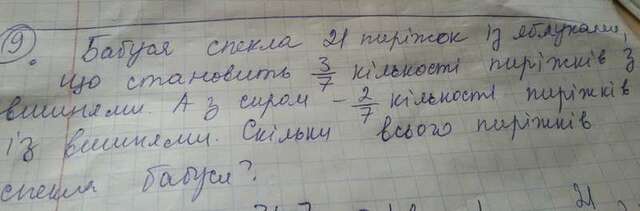 9. Бабуся спекла 21 пиріжок із яблуками,
що становить 3/7 кількості пиріжків з
вишнями. А з сиром - 2/7 кількості пиріжків
із вишнями. Скільки всього пиріжків
спекла бабуся?
21